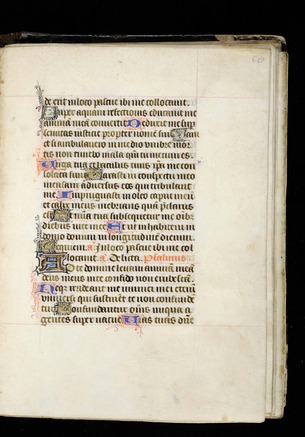 60
de erit in loco pascue ibi me collocauit.
Super aquam refectionis educauit me
animam meam conuertit Deduxit me sup
semitas iusticie propter nomē suū Nam
et si ambulauero in medio umbre mor
tis non timebo mala qm̄ mecum es
Uirga tua et baculus tuus ipā me con
solata sunt Parasti in conspectu meo
mensam aduersus eos qui tribulant
me Impinguasti in oleo caput meū
et calix meus inebrians
tua subsequetur me oībꝫ
diebus uite mee Et ut inhabitem in
domo domini in longitudinē dierum
Requiem a In loco pascue ibi me col
locauit a Delicta Psalmus
Ad te domine leuaui animā meā
deus meus in te confido non erubescā
Neqꝫ irrideant me inimici mei etenim
uniuersi qui sustinēt te non confundē
tur Confundantur om̄s iniqua a
gentes super uacue Uias tuas dn̄e